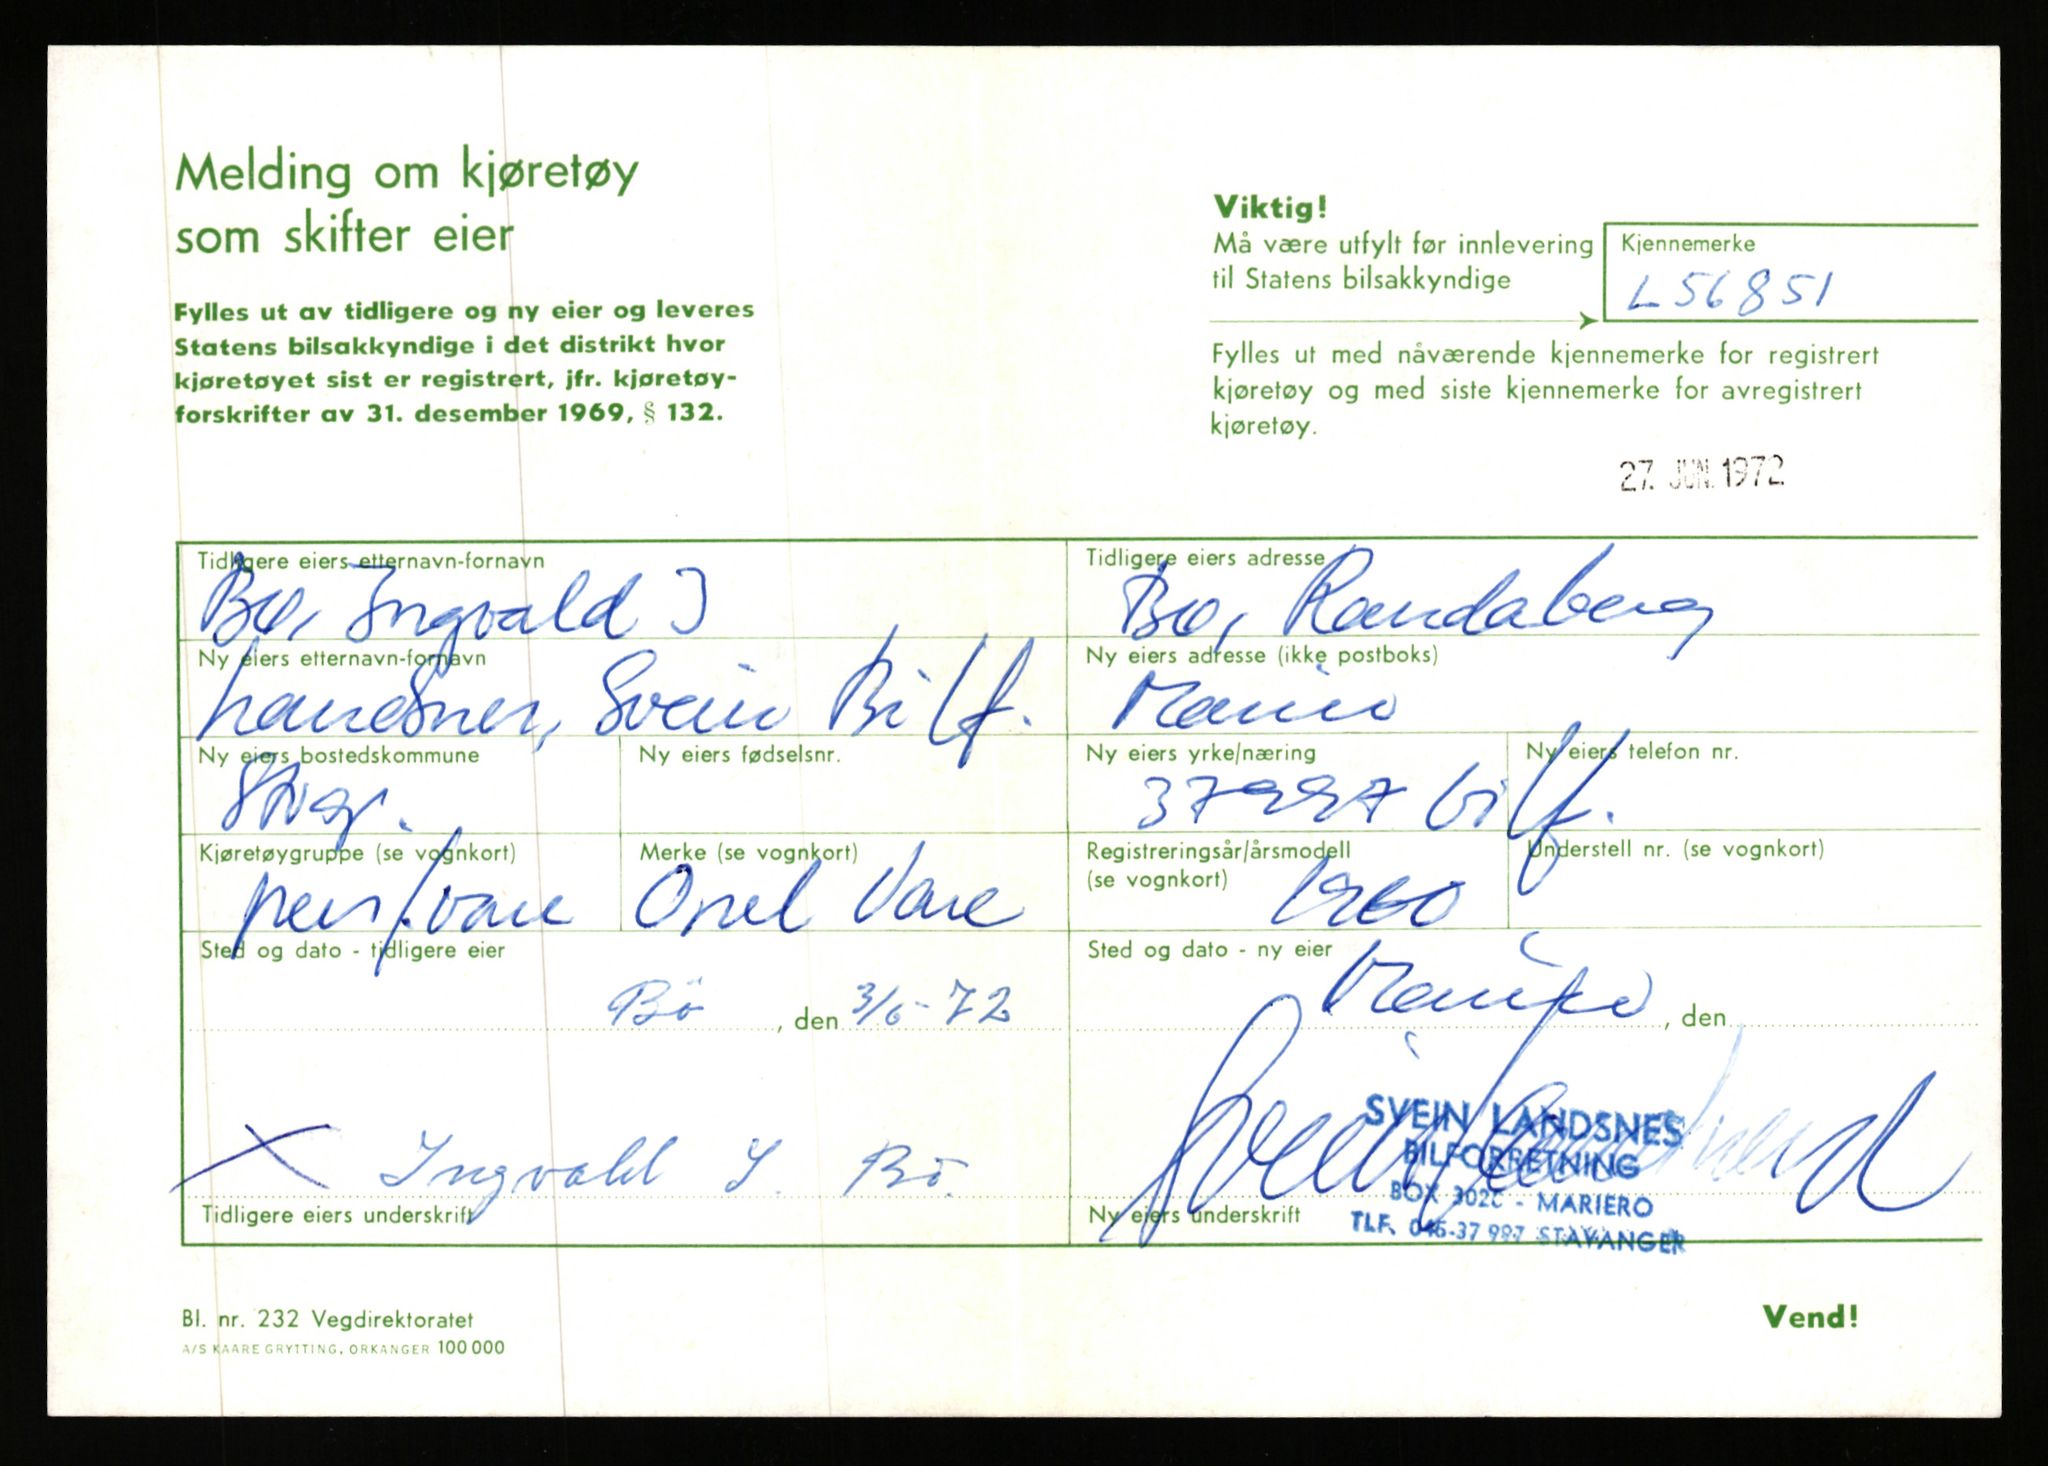 Melding om kjøretøy
som skifter eier
Fylles ut av tidligere og ny eier og leveres
Statens bilsakkyndige i det distrikt hvor
kjøretøyet sist er registrert, jfr. kjøretøy-
forskrifter av 31. desember 1969, § 132.
Viktig!
Må være utfylt før innlevering
til Statens bilsakkyndige
Kjennemerke
L 56851
Fylles ut med nåværende kjennemerke for registrert
kjøretøy og med siste kjennemerke for avregistrert
kjøretøy.
27. JUN. 1972
Tidligere eiers etternavn-fornavn
Bø, Ingvald J
Tidligere eiers adresse
Bø, Randaberg
Ny eiers etternavn-fornavn
Landsnes, Svein Bilf.
Ny eiers adresse (ikke postboks)
Ny eiers bostedskommune
Stvgr.
Ny eiers fødselsnr.
Ny eiers yrke/næring
37997 bilf.
Ny eiers telefon nr.
Kjøretøygruppe (se vognkort)
pers/vare
Merke (se vognkort)
Opel Vare
Registreringsår/årsmodell
(se vognkort)
1960
Understell nr. (se vognkort)
Sted og dato - tidligere eier
Bö, den 3/6-72
Sted og dato - ny eier
, den
X Ingvald J. Bö.
Tidligere eiers underskrift
Svein Landsnes
Ny eiers underskrift
SVEIN LANDSNES
BILFORRETNING
BOX 3028 - MARIERO
TLF. 045-37 997 STAVANGER
Bl. nr. 232 Vegdirektoratet
A/S KAARE GRYTTING, ORKANGER 100 000
Vend!